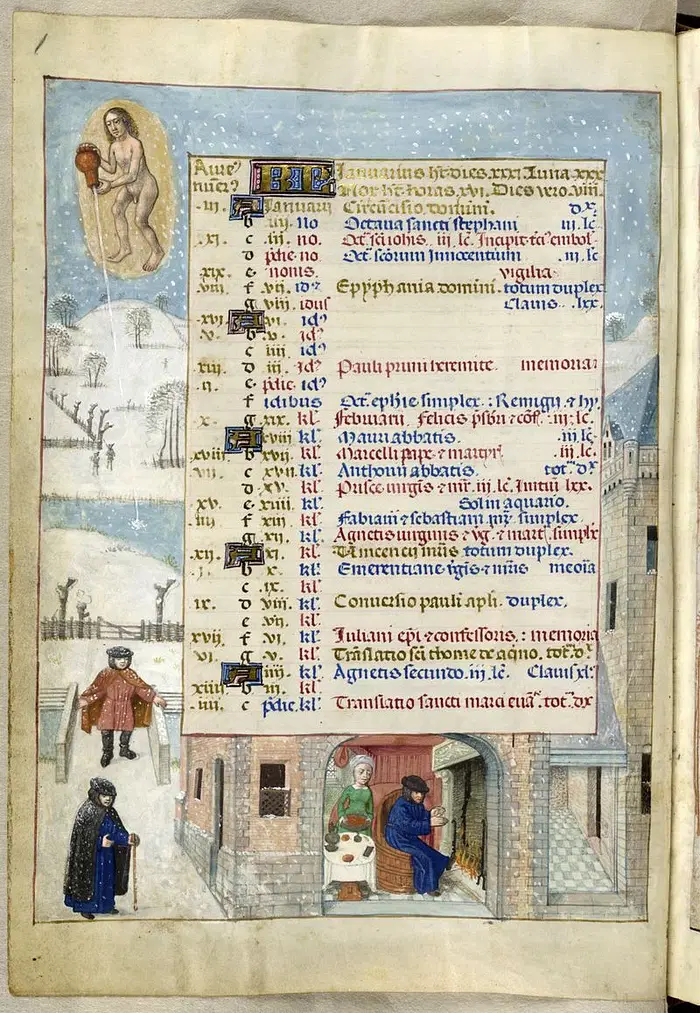 Aure⁹ KL Januarius ht dies xxxi. Luna xxx
nuer⁹ Nox ht horas xvi. Dies vero viii.
.iii. A Januarii Circūcisio domini. dx
b .iiii. no Octava sancti stephani iii. lc.
.xi. c .iii. no. Oct. scī iohīs. iii. lc. Incipit
d pdie no. Oct. scōrum Innocentum .iii. lc
.xix. e nonis. vigilia
viii. f viii. idꝰ Epyphania domini. totum duplex
g viii. idus Clavis .lxx.
.xvi. A vi. idꝰ
.v. b v. idꝰ
c iiii. idꝰ
xiii. d iii. idꝰ Pauli primi heremite. memoria
.ii. e pdie. idꝰ
f idibus Oct. ephie simplex. : Remigii & hy.
.x. g xix. kl. Februarii. Felicis psbri & cōf. iii. lc.
A xviii kl. Mauri abbatis. .iii. lc.
xviii b xvii. kl. Marcelli pape & martyr. iii. lc.
.vii. c xvii. kl. Anthonii abbatis. tot. dx
d .xv. kl. Prisce virgīs & mr. iii. lc. Initiū lxx.
xv. e xiiii. kl. Sol in aquario.
.iiii. f xiii. kl. Fabiani & sebastiani mr. simplex
g xii. kl. Agnetis virginis & mart. simplx
.xii. A xi. kl. Vincencii mrīs totum duplex.
.i. b x. kl. Emerentiane vgīs & mrīs memōia
c ix. kl.
ix. d viii. kl. Conversio pauli apli. duplex.
e vii. kl.
xvii. f vi. kl. Juliani epī & confessoris. : memoria
vi. g v. kl. Translatio scī thome de aqino. tot. dx
A iiii. kl. Agnetis secundo. iii. lc. Clavis xl.
xiiii b iii. kl.
.iii. c pdie. kl. Translatio sancti marci evā. tot. dx